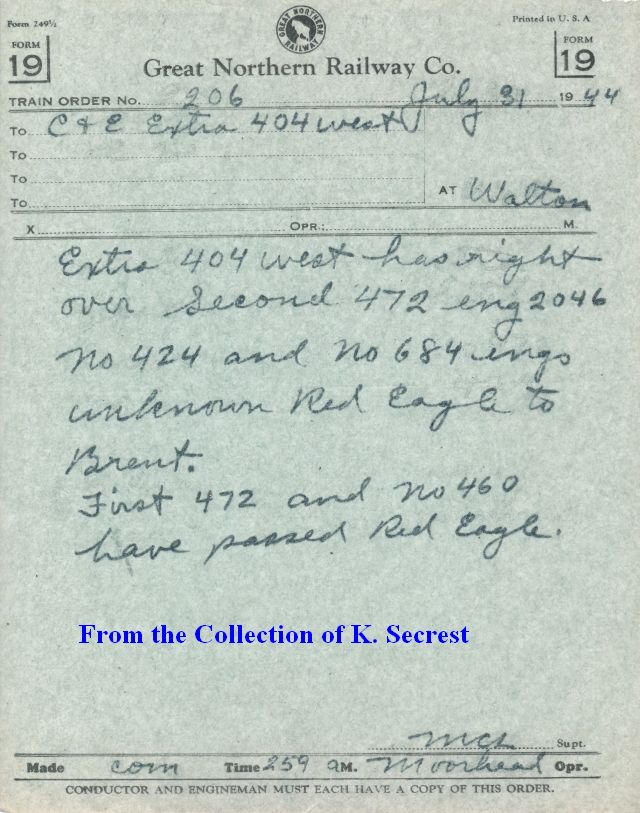 Form 249½
Printed in U. S. A
FORM
19
GREAT NORTHERN RAILWAY
FORM
19
Great Northern Railway Co.
TRAIN ORDER No. 206 July 31 1944
To C & E Extra 404 west
To
To
To
AT Walton
X OPR.: M.
Extra 404 west has right
over Second 472 eng 2046
No 424 and No 684 engs
unknown Red Eagle to
Brent.
First 472 and No 460
have passed Red Eagle.
From the Collection of K. Secrest
Supt.
Made com Time 259 aM. Moorhead Opr.
CONDUCTOR AND ENGINEMAN MUST EACH HAVE A COPY OF THIS ORDER.